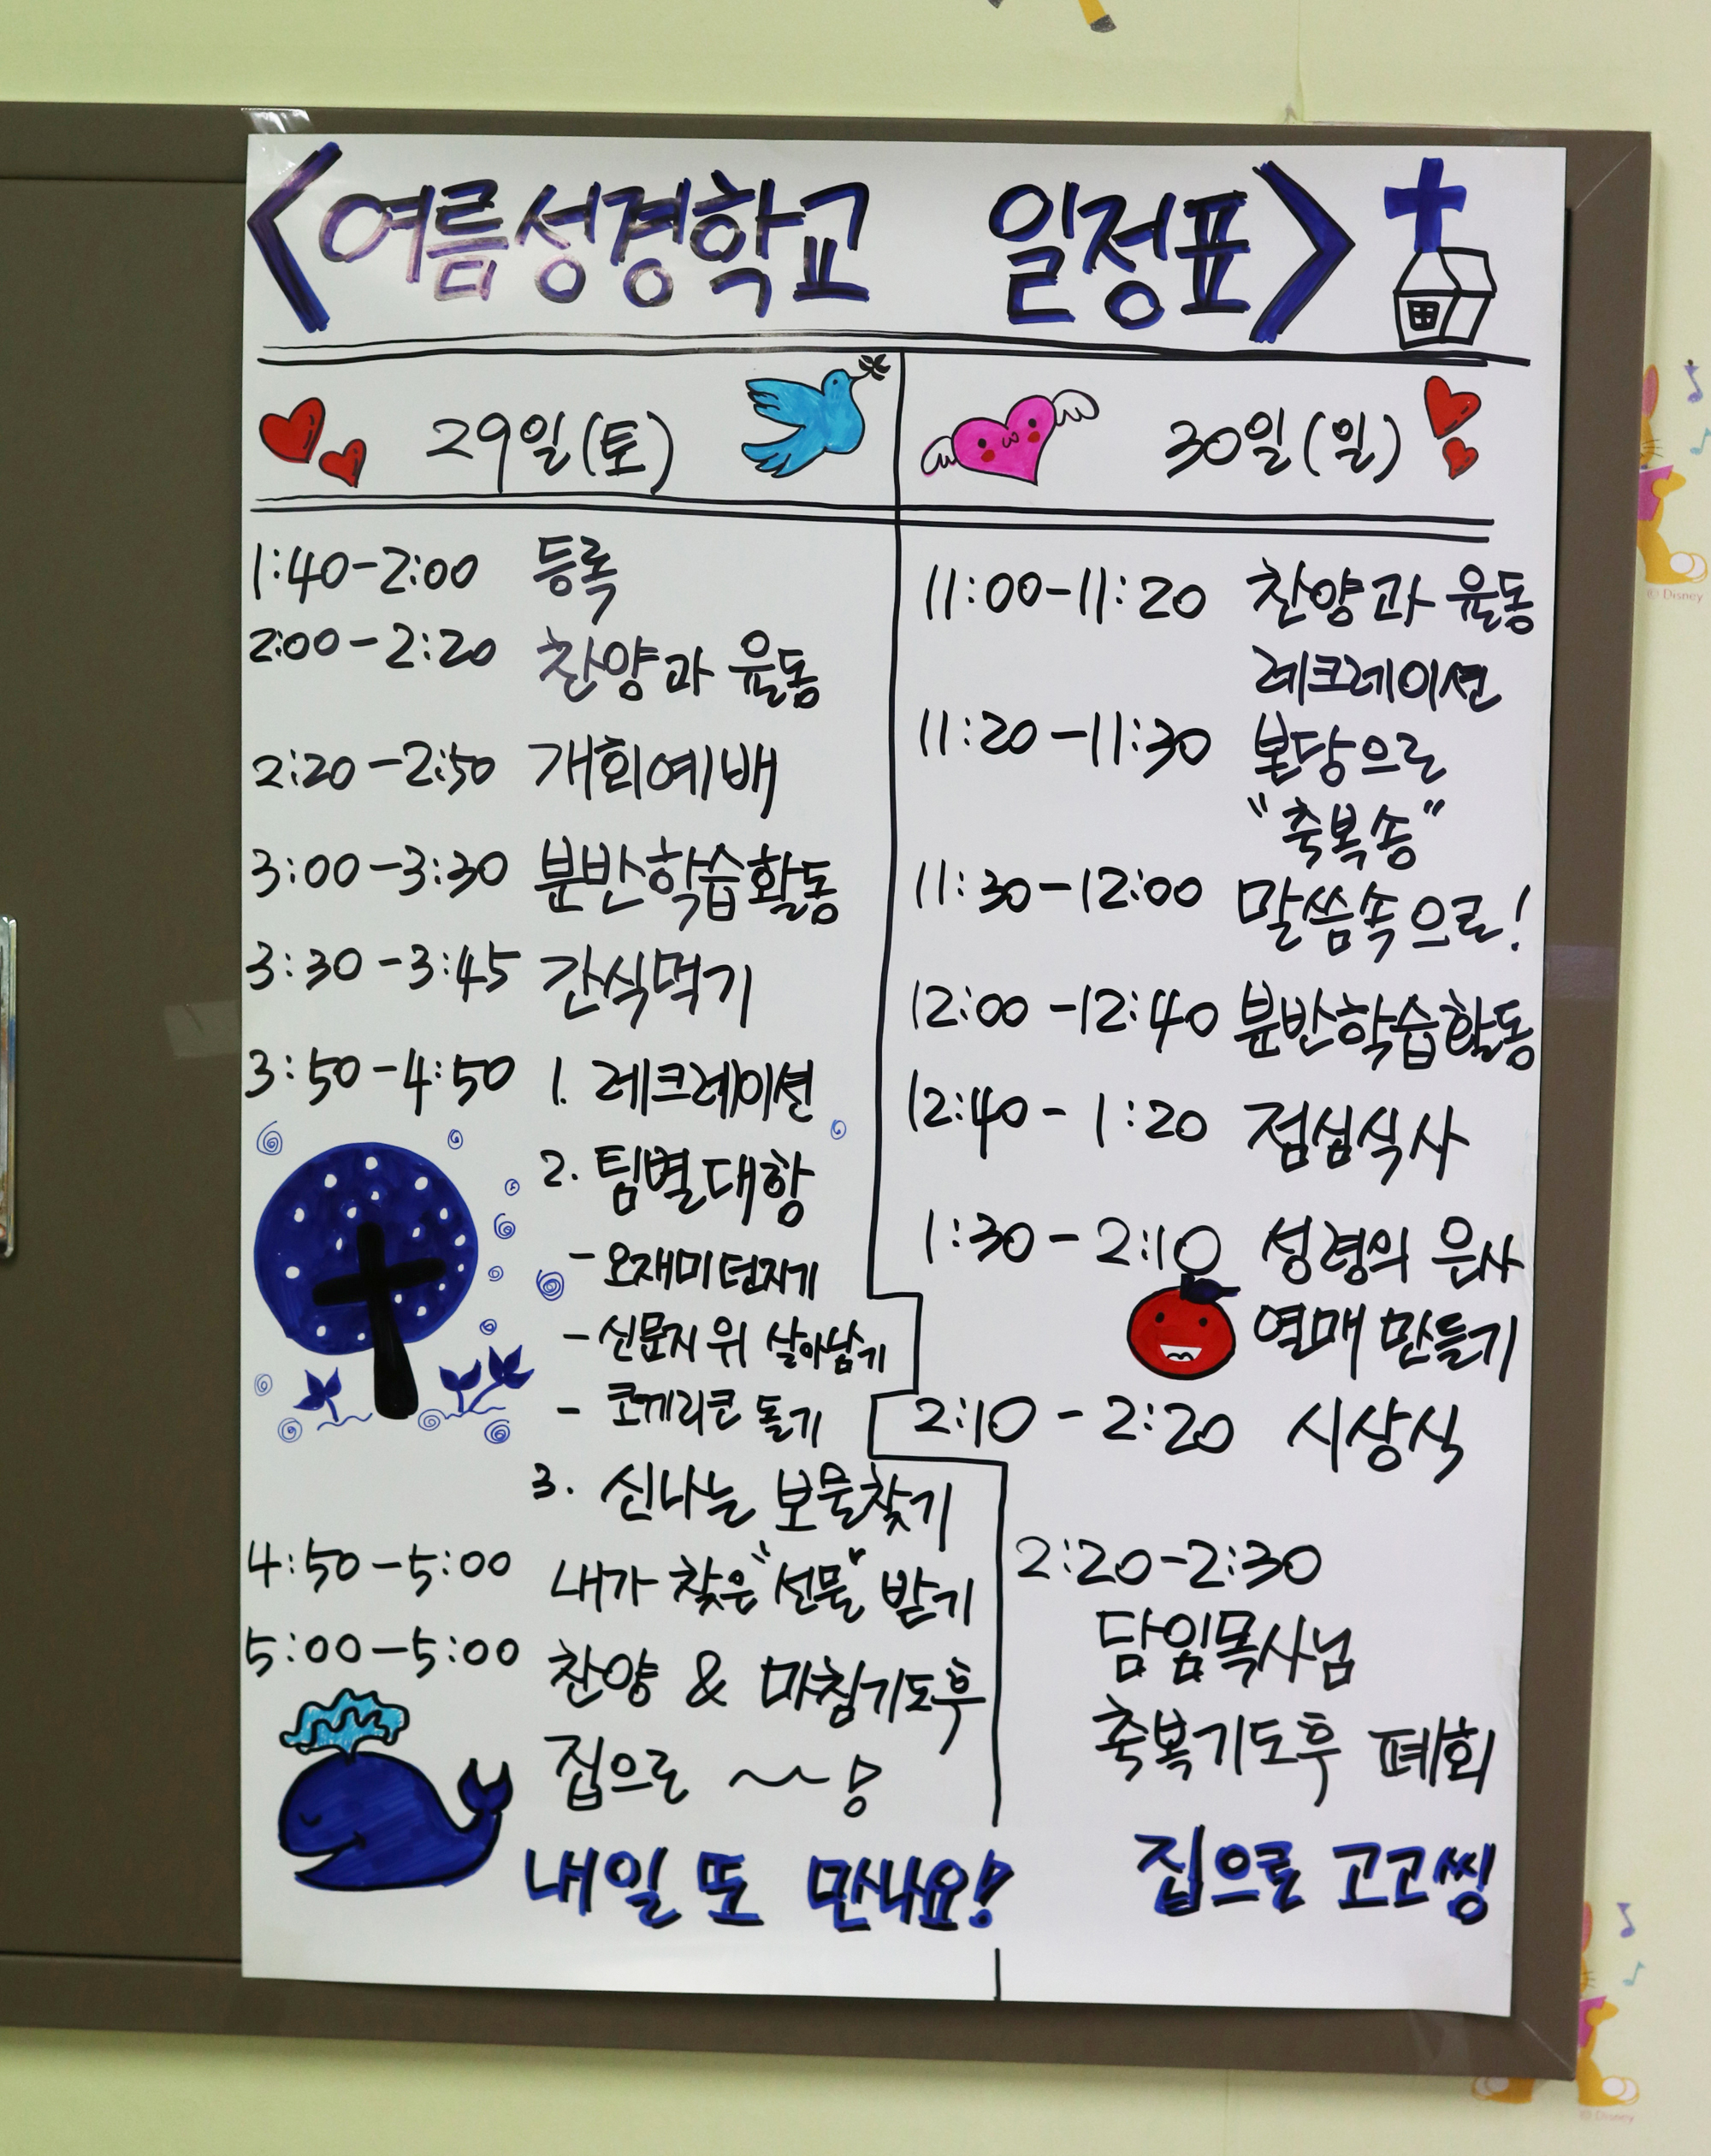 <여름성경학교 일정표>
29일(토)
1:40-2:00 등록
2:00-2:20 찬양과 율동
2:20-2:50 개회예배
3:00-3:30 분반학습활동
3:30-3:45 간식먹기
3:50-4:50 1. 레크레이션
2. 팀별대항
- 오재미던지기
- 신문지 위 살아남기
- 코끼리코 돌기
3. 신나는 보물찾기
4:50-5:00 내가 찾은 "선물" 받기
5:00-5:00 찬양 & 마침기도후
집으로 ~~!
내일 또 만나요!
30일(일)
11:00-11:20 찬양과 율동
레크레이션
11:20-11:30 본당으로
"축복송"
11:30-12:00 말씀속으로!
12:00-12:40 분반학습활동
12:40-1:20 점심식사
1:30-2:10 성령의 은사
열매 만들기
2:10-2:20 시상식
2:20-2:30
담임목사님
축복기도후 폐회
집으로 고고씽
© Disney
© Disney